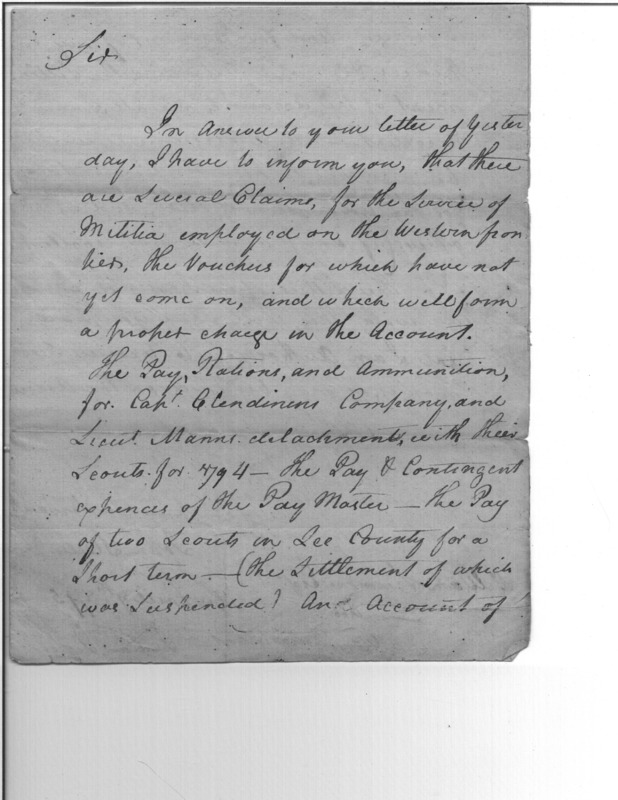 Sir
In Answer to your letter of Yester
day, I have to inform you, that there
are Several Claims, for the Service of
Militia employed on the Western fron
tier, the Vouchers for which have not
yet come on, and which will form
a proper charge in the Account.
The Pay, Rations, and Ammunition,
for Capt. Clendinens Company, and
Lieut. Manns detachment, with their
Scouts for 1794 — the Pay & Contingent
expences of the Pay Master — the Pay
of two Scouts in Lee County for a
Short term — (the Settlement of which
was Suspended) An Account of